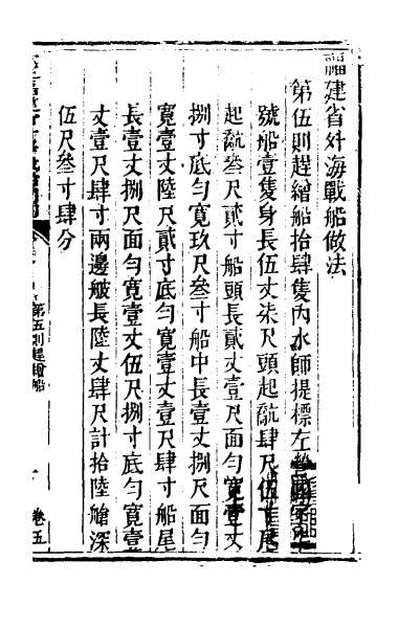 福建省外海戰船做法
第伍則趕繒船拾肆隻內水師提標左
號船壹隻身長伍丈柒尺頭起㼮肆尺伍寸尾
起㼮叁尺貳寸船頭長貳丈壹尺面勻寬壹丈
捌寸底勻寬玖尺叁寸船中長壹丈捌尺面勻
寬壹丈陸尺貳寸底勻寬壹丈壹尺肆寸船尾
長壹丈捌尺面勻寬壹丈伍尺捌寸底勻寬壹
丈壹尺肆寸兩邊艍長陸丈肆尺計拾陸艙深
伍尺叁寸肆分
第五則趕繒船
一
卷五